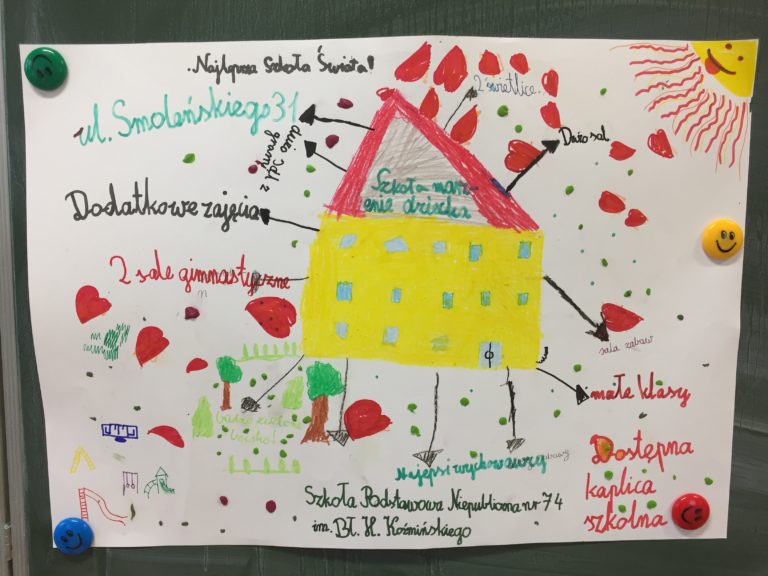 Najlepsza Szkoła Świata!
ul. Smoleńskiego 31
2 świetlice.
dużo
z
gramy
Dużo sal
Szkoła marz-
enie dziecka
Dodatkowe zajęcia
2 sale gimnastyczne
sala zabaw
małe klasy
boisko!
Najlepsi wychowawcy
Dostępna
kaplica
szkolna
Szkoła Podstawowa Niepubliczna nr 74
im. Bł. H. Koźmińskiego